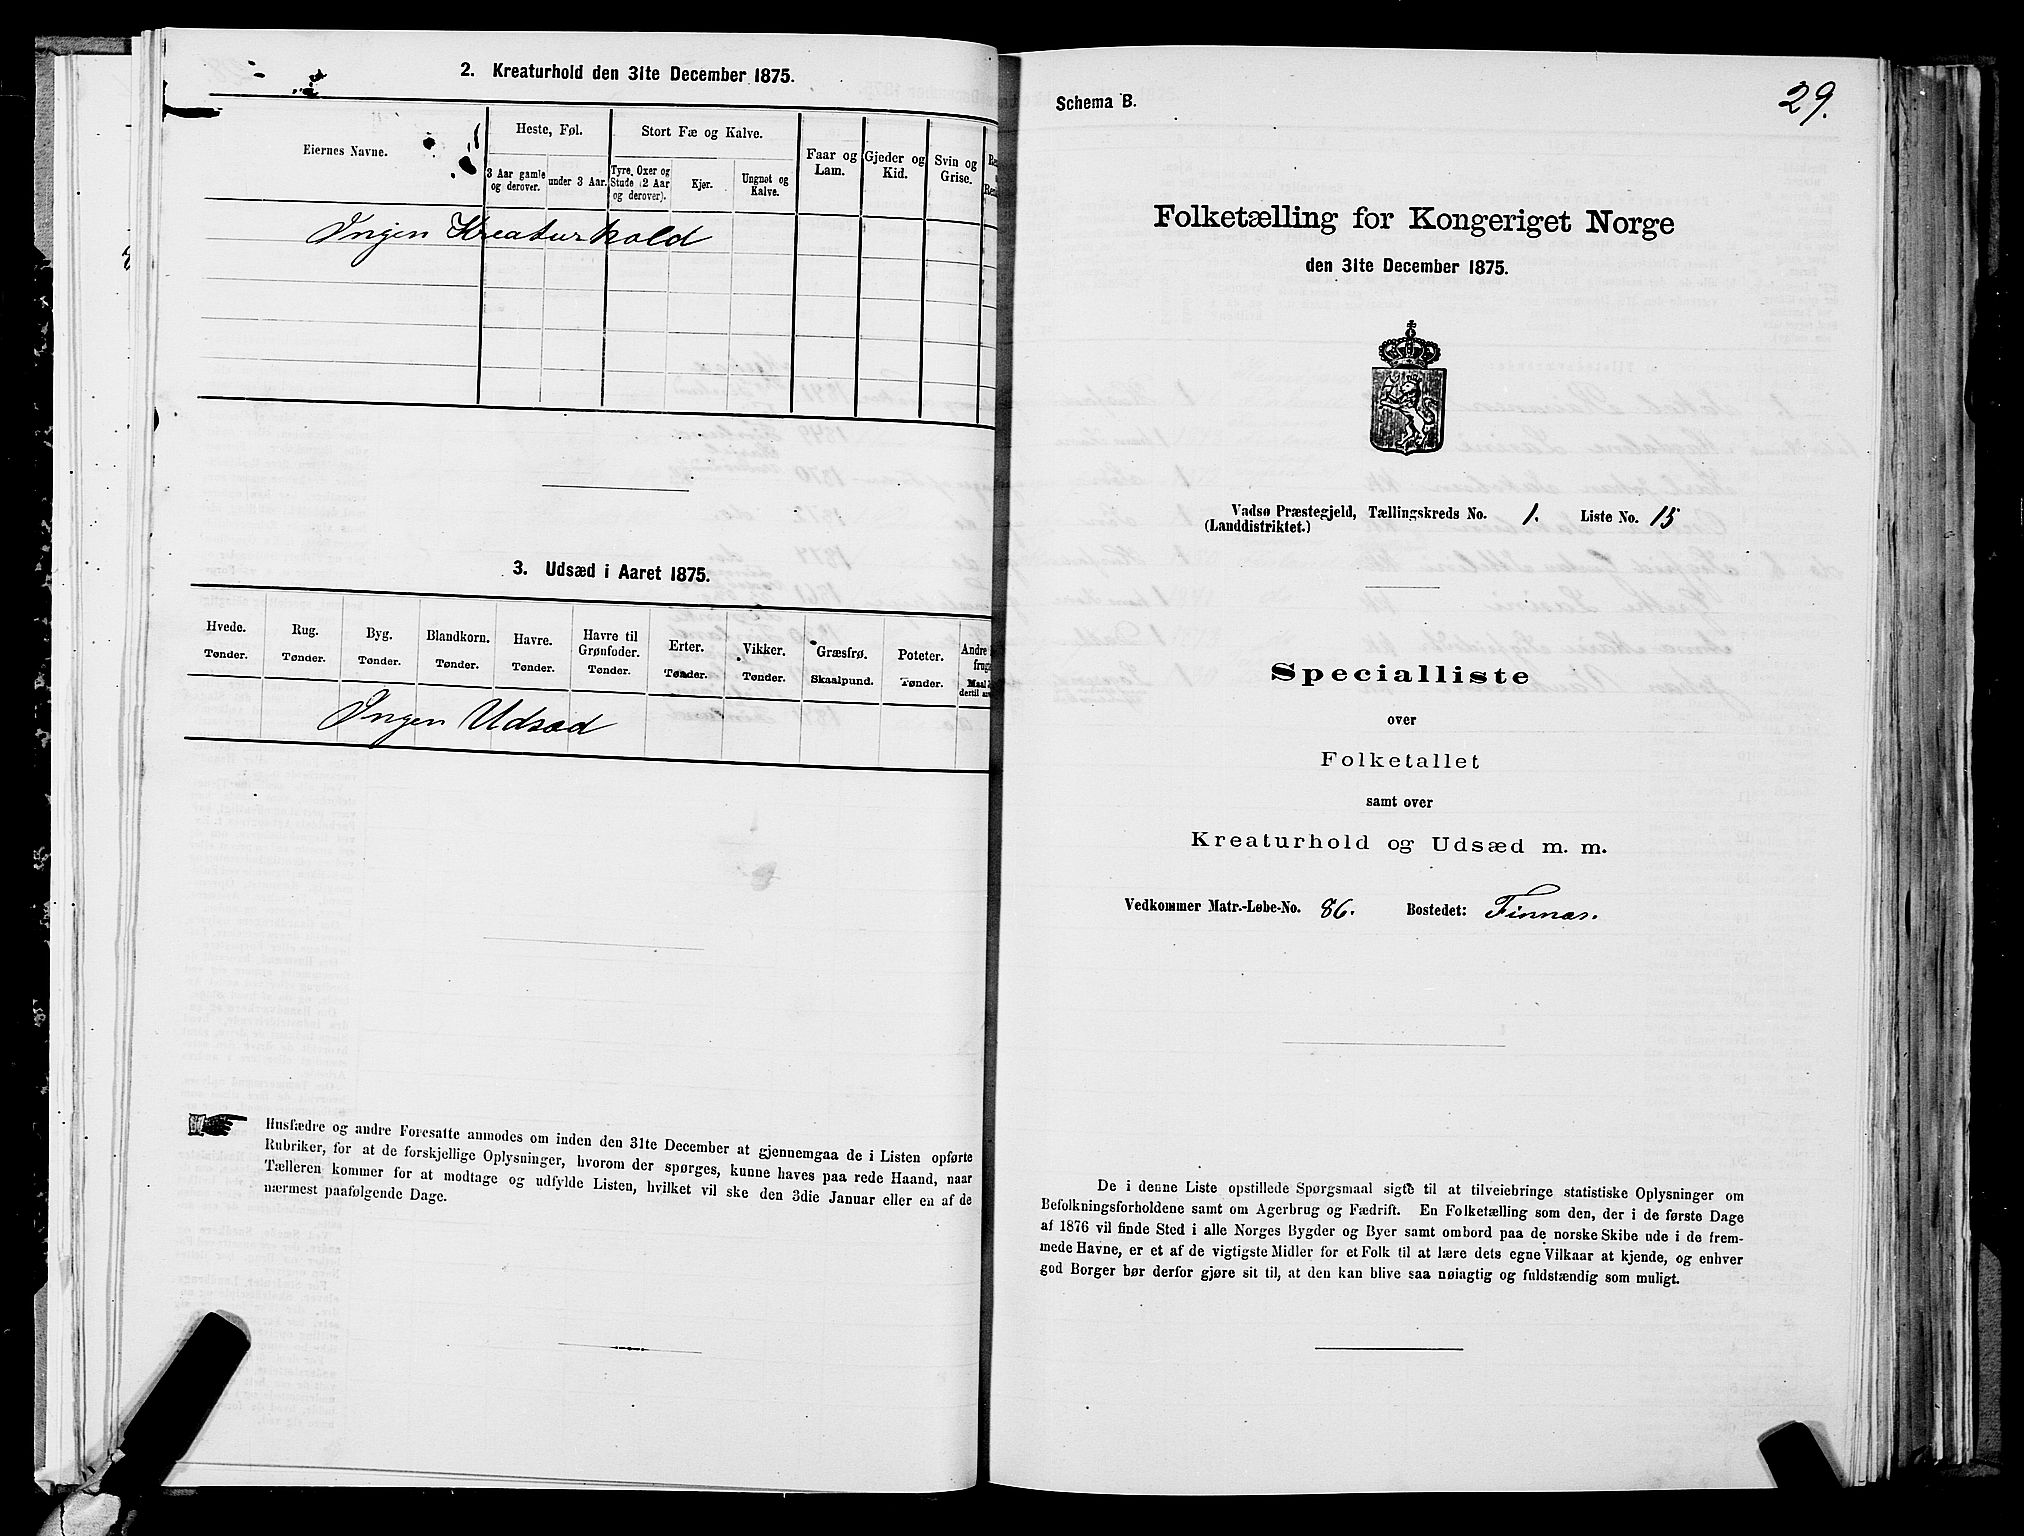 2. Kreaturhold den 31te December 1875.
Eiernes Navne.
Heste, Føl.
Stort Fæ og Kalve.
Faar og
Lam.
Gjeder og
Kid.
Svin og
Grise.
3 Aar gamle
og derover.
under 3 Aar.
Tyre, Oxer og
Stude (2 Aar
og derover).
Kjør.
Ungnøt og
Kalve.
Ingen Kreaturhold
3. Udsæd i Aaret 1875.
Hvede.
Tønder.
Rug.
Tønder.
Byg.
Tønder.
Blandkorn.
Tønder.
Havre.
Tønder.
Havre til
Grønfoder.
Tønder.
Erter.
Tønder.
Vikker.
Tønder.
Græsfrø.
Skaalpund.
Poteter.
Tønder.
Andre
Ingen Udsæd
Husfædre og andre Foresatte anmodes om inden den 31te December at gjennemgaa de i Listen opførte
Rubriker, for at de forskjellige Oplysninger, hvorom der spørges, kunne haves paa rede Haand, naar
Tælleren kommer for at modtage og udfylde Listen, hvilket vil ske den 3die Januar eller en af de
nærmest paafølgende Dage.
29.
Schema B.
Folketælling for Kongeriget Norge
den 31te December 1875.
Vadsø Præstegjeld, Tællingskreds No. 1. Liste No. 15
(Landdistriktet.)
Specialliste
over
Folketallet
samt over
Kreaturhold og Udsæd m. m.
Vedkommer Matr.-Løbe-No. 86. Bostedet: Finnæs.
De i denne Liste opstillede Spørgsmaal sigte til at tilveiebringe statistiske Oplysninger om
Befolkningsforholdene samt om Agerbrug og Fædrift. En Folketælling som den, der i de første Dage
af 1876 vil finde Sted i alle Norges Bygder og Byer samt ombord paa de norske Skibe ude i de frem-
mede Havne, er et af de vigtigste Midler for et Folk til at lære dets egne Vilkaar at kjende, og enhver
god Borger bør derfor gjøre sit til, at den kan blive saa nøiagtig og fuldstændig som muligt.